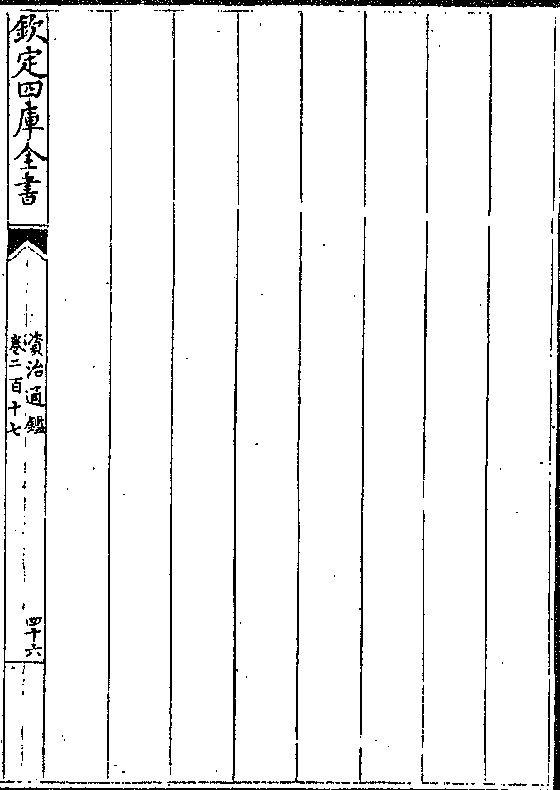 欽定四庫全書
資治通鑑
卷二百十七
四十六